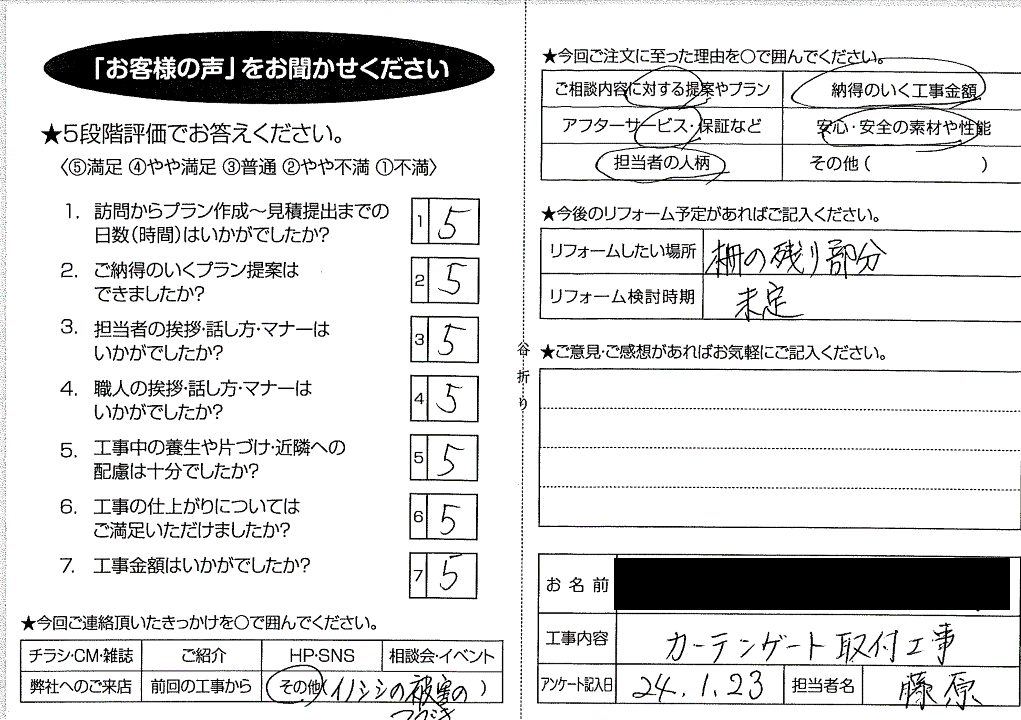 「お客様の声」をお聞かせください
★5段階評価でお答えください。
〈⑤満足 ④やや満足 ③普通 ②やや不満 ①不満〉
1. 訪問からプラン作成〜見積提出までの
日数(時間)はいかがでしたか?
1 5
2. ご納得のいくプラン提案は
できましたか?
2 5
3. 担当者の挨拶・話し方・マナーは
いかがでしたか?
3 5
4. 職人の挨拶・話し方・マナーは
いかがでしたか?
4 5
5. 工事中の養生や片づけ・近隣への
配慮は十分でしたか?
5 5
6. 工事の仕上がりについては
ご満足いただけましたか?
6 5
7. 工事金額はいかがでしたか?
7 5
★今回ご連絡頂いたきっかけを○で囲んでください。
チラシ・CM・雑誌 ご紹介 HP・SNS 相談会・イベント
弊社へのご来店 前回の工事から その他(イノシシの被害の)
谷折り
★今回ご注文に至った理由を○で囲んでください。
ご相談内容に対する提案やプラン 納得のいく工事金額
アフターサービス・保証など 安心・安全の素材や性能
担当者の人柄 その他( )
★今後のリフォーム予定があればご記入ください。
リフォームしたい場所 柵の残り部分
リフォーム検討時期 未定
★ご意見・ご感想があればお気軽にご記入ください。
お名前
工事内容 カーテンゲート取付工事
アンケート記入日 24.1.23 担当者名 藤原